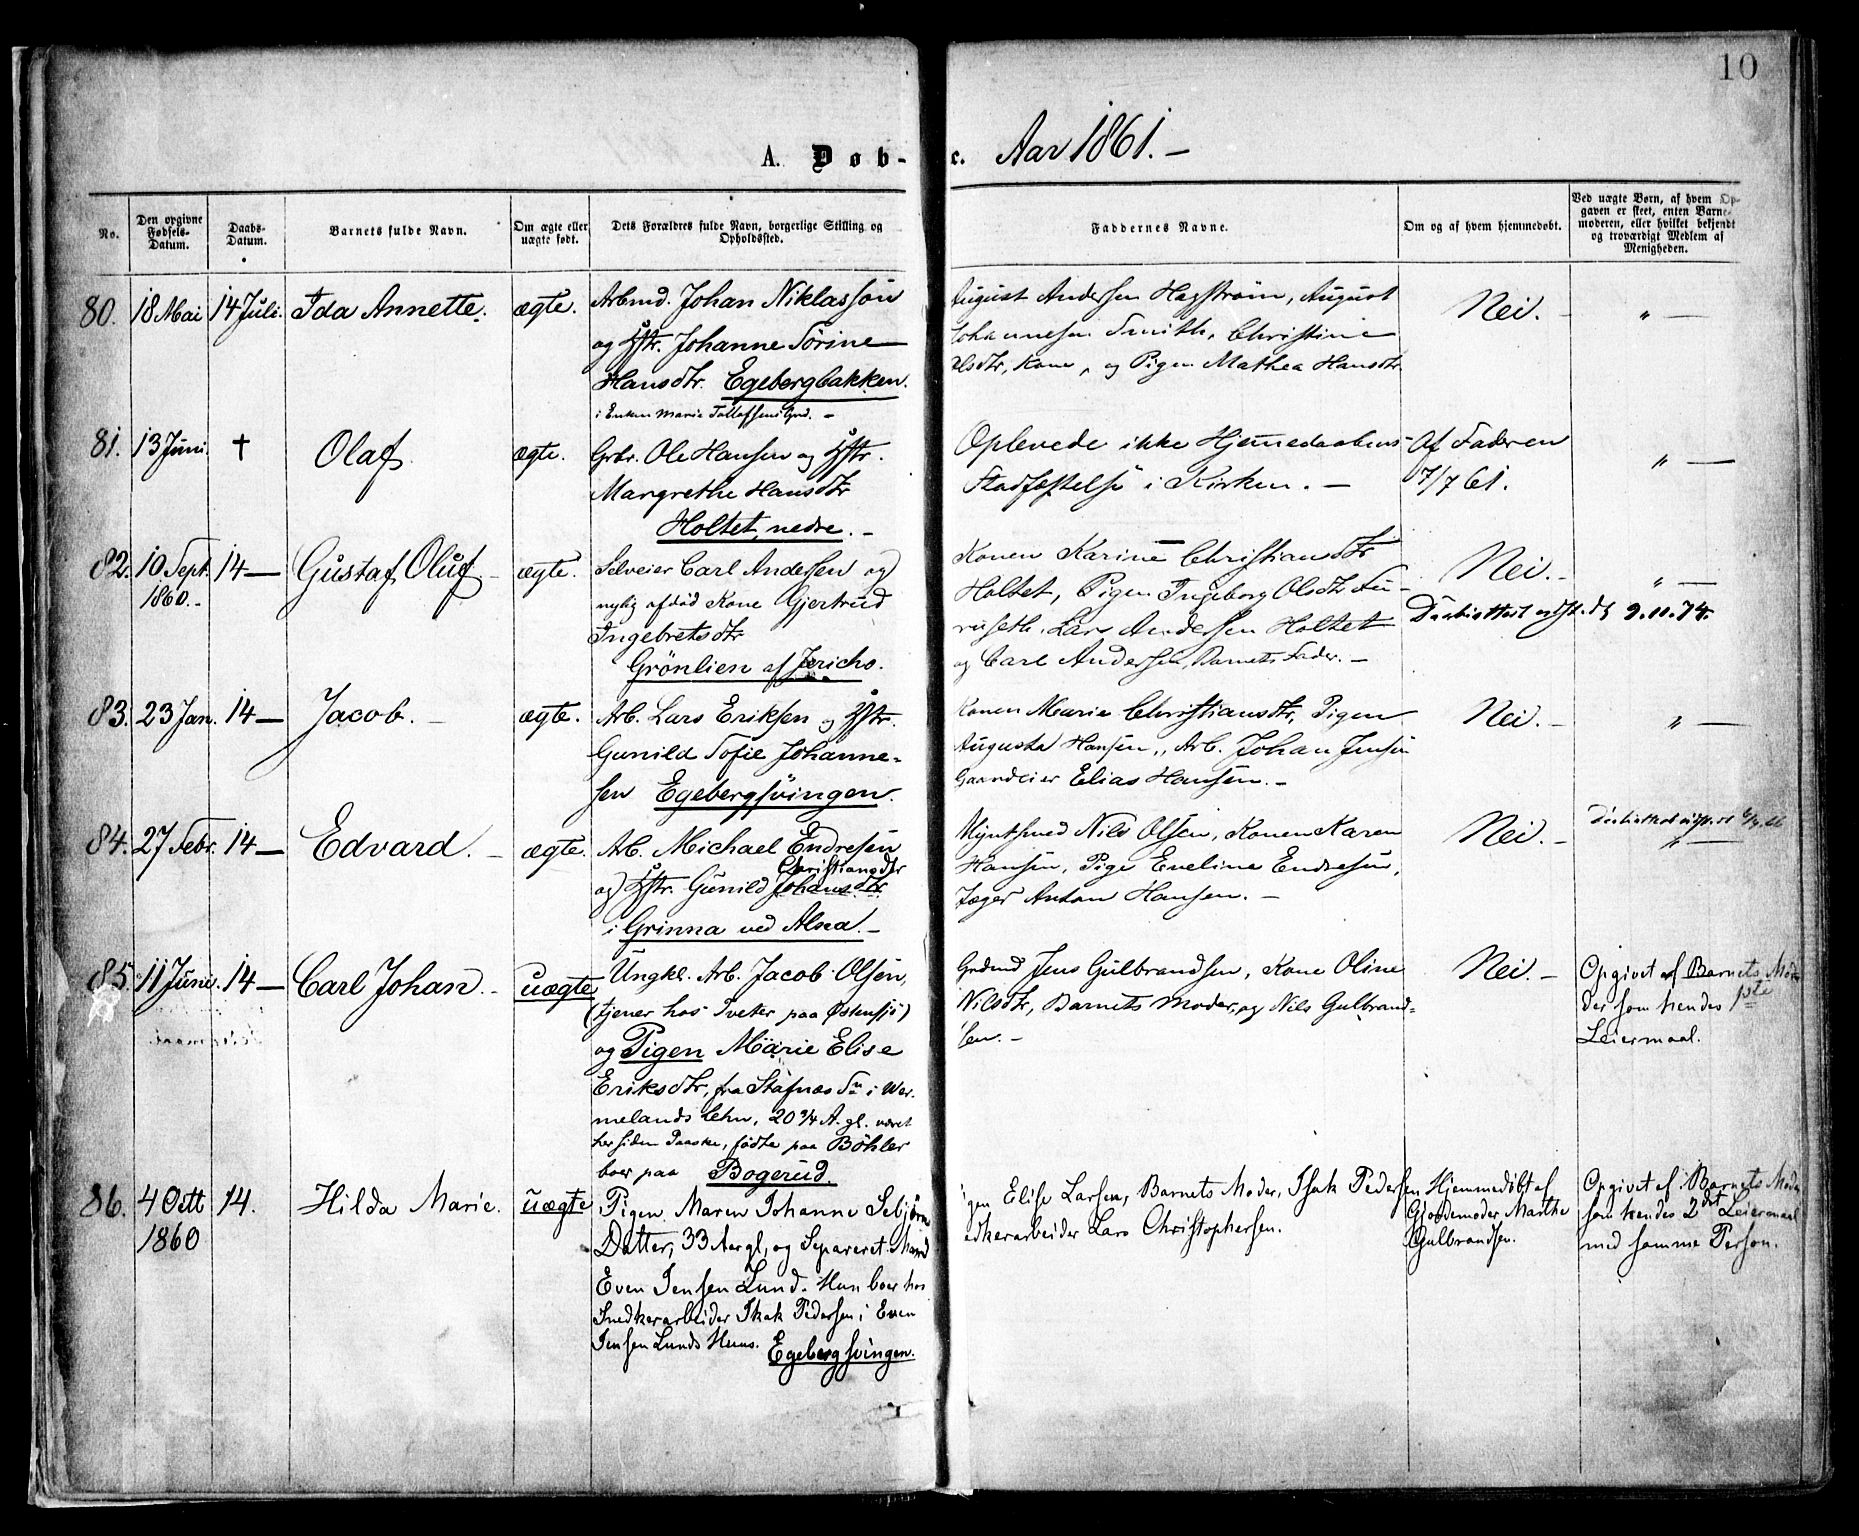 10
A. Døb- c. Aar 1861.-
No.
Den opgivne Fødsels-Datum.
Daabs-Datum.
Barnets fulde Navn.
Om ægte eller uægte født.
Dets Forældres fulde Navn, borgerlige Stilling og Opholdssted.
Faddernes Navne.
Om og af hvem hjemmedøbt.
Ved uægte Børn, af hvem Opgaven er skeet, enten Barnemoderen, eller hvilket bekjendt og troværdigt Medlem af Menigheden.
80. 18 Mai 14 Juli. Ida Annette. ægte.
Arbmd. Johan Niklasson
og Hstr. Johanne Sörine
Hansdtr. Egebergbakken.
i Enken Marie Tollefsens Grd. -
August Andersen Hagström, August
Johannesen Smith, Christine
Olsdtr, Kone, og Pigen Mathea Hansdtr
Nei. - " -
81. 13 Juni. † Olaf. ægte.
Grbr. Ole Hansen og Hstr.
Margrethe Hansdtr
Holtet, nedre. -
Oplevede ikke Hjemmedaabens-
Stadfæstelse i Kirken. -
Af Faderen
17/7 61.
" -
82. 10 Sept. 14 - Gustaf Oluf - ægte.
1860.-
Selveier Carl Andersen og
nylig afdød Kone Gjertrud
Ingebretsdtr
Grönlien af Jericho.
Konen Karine Christiansdtr
Holtet, Pigen Ingeborg Olsdtr Fu-
ruseth, Lars Andersen Holtet
og Carl Andersen, Barnets Fader. -
Nei. - " -
Daabsattest udst. d. 9.11.74.
83. 23 Jan. 14 - Jacob. - ægte.
Arb. Lars Eriksen og Hstr.
Gunild Sofie Johanne-
sen Egebergsvingen.
Konen Marie Christiansdtr, Pigen
Augusta Hansen, Arb. Johan Jensen
Gaardeier Elias Hansen. -
Nei. - " -
84. 27 Febr. 14 - Edvard. - ægte.
Arb. Michael Endresen
Christiansdtr
og Hstr. Gunild Johansdtr.
i Grinna ved Alna. -
Myntsmed Nils Olsen, Konen Karen
Hansen, Pige Eveline Endresen,
Jæger Anton Hansen. -
Nei. -
" -
85. 11 Juni. 14 - Carl Johan. - uægte
Ungkl. Arb. Jacob Olsen,
(tjener hos Iveter paa Østensjö)
og Pigen Marie Elise
Eriksdtr, fra Stafnæs Sn i Wer-
melands Lehn, 20 3/4 A. gl. været
her siden Paaske, födte paa Böhler
boer paa Bogerud.
Grdmd Jens Gulbrandsen, Kone Oline
Nilsdtr, Barnets Moder, og Nils Gulbrand-
sen. -
Nei. -
Opgivet af Barnets Mo-
der som hendes 1ste
Leiermaal.
86. 4 Oktt 14. Hilda Marie. uægte
1860
Pigen Maren Johanne Sebjörns
Datter, 33 Aar gl, og Separeret Mand
Even Jensen Lund. Hun boer hos
Snedkerarbeider Isak Pedersen i Even
Jensen Lunds Huus. Egebergsvingen.
Pigen Elise Larsen, Barnets Moder, Isak Pedersen
Snedkerarbeider Lars Christophersen.
Hjemmedöbt af
Gjordemoder Marthe
Gulbrandsen.
Opgivet af Barnets Moder
som hendes 2det Leiermaal
med samme Person.